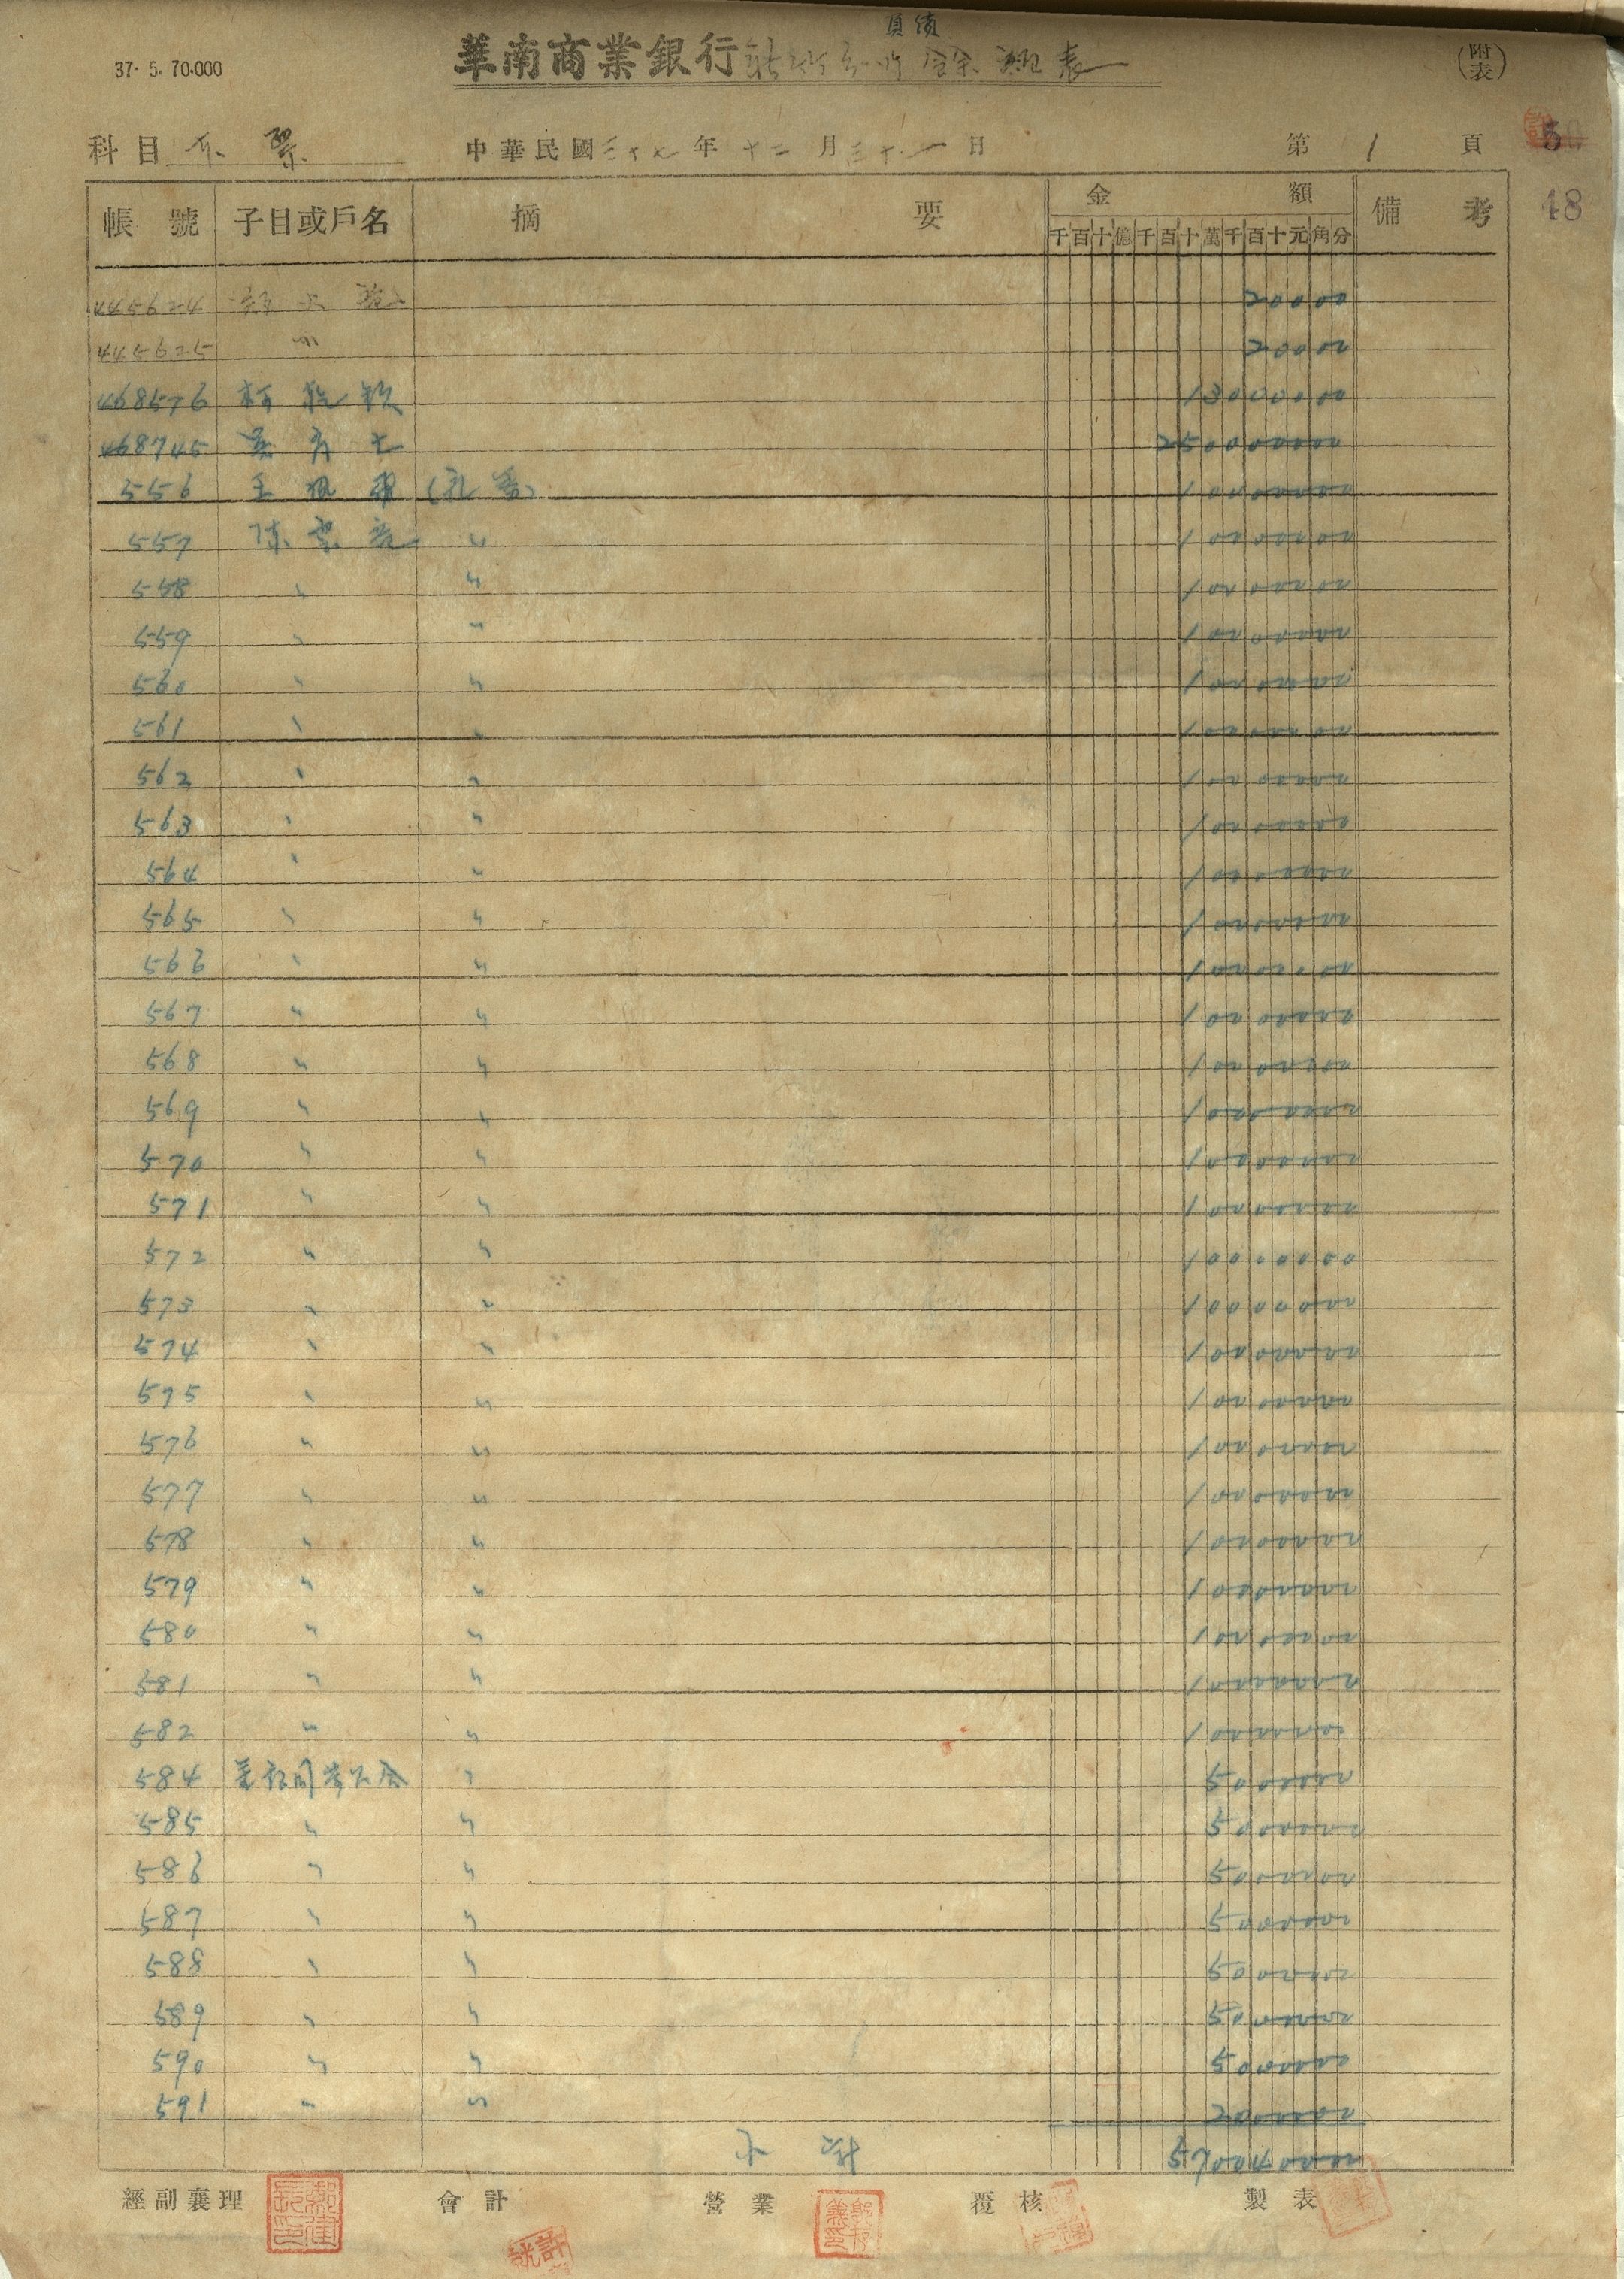 37. 5. 70.000
華南商業銀行 負債 餘額表
(附表)
科目 本票 中華民國三十七年十二月三十一日 第1頁
50
48
帳號 子目或戶名 摘要 金額 備考
千百十億千百十萬千百十元角分
445624 20000
445625 〃 20000
468576 13000000
468745 250000000
556 王 10000000
557 陳 〃 10000000
558 〃 〃 10000000
559 〃 〃 10000000
560 〃 〃 10000000
561 〃 〃 10000000
562 〃 〃 10000000
563 〃 〃 10000000
564 〃 〃 10000000
565 〃 〃 10000000
566 〃 〃 10000000
567 〃 〃 10000000
568 〃 〃 10000000
569 〃 〃 10000000
570 〃 〃 10000000
571 〃 〃 10000000
572 〃 〃 10000000
573 〃 〃 10000000
574 〃 〃 10000000
575 〃 〃 10000000
576 〃 〃 10000000
577 〃 〃 10000000
578 〃 〃 10000000
579 〃 〃 10000000
580 〃 〃 10000000
581 〃 〃 10000000
582 〃 〃 10000000
584 〃 5000000
585 〃 〃 5000000
586 〃 〃 5000000
587 〃 〃 5000000
588 〃 〃 5000000
589 〃 〃 5000000
590 〃 〃 5000000
591 〃 〃 2000000
小計 570040000
經副襄理 會計 營業 覆核 製表